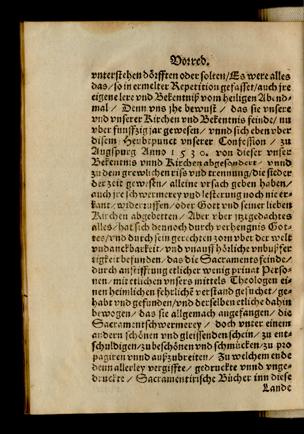 Vorred.
vnterstehen dörfften oder solten/Es were alles
das/so in ermelter Repetition gefasset/auch jre
eigene lere vnd Bekentniß vom heiligen Abend-
mal/ Denn vns jhe bewust/ das sie vnsere
vnd vnserer Kirchen vnd Bekentnis feinde/nu
vber funffzig jar gewesen/ vnnd sich eben vber
disem Heubtpunct vnserer Confession/ zu
Augspurg Anno 1530. von dieser vnser
Bekentnis vnnd Kirchen abgesondert/ vnnd
zu dem grewlichen riss vnd trennung/die sieder
der zeit gewesen/ alleine vrsach geben haben/
auch jre schwermerey vnd lesterung noch nie er-
kant/widerruffen/oder Gott vnd seiner lieben
Kirchen abgebetten/ Aber vber itzgedachtes
alles/hat sich dennoch durch verhengnis Got-
tes/vnd durch sein gerechten zorn vber der welt
vndanckbarkeit/ vnd vnaufhörliche vnbußfer-
tigkeit befunden/das die Sacramentsfeinde/
durch anstifftung etlicher wenig priuat Perso-
nen/mit etlichen vnsers mittels Theologen ei-
nen heimlichen sehrlichē verstand gesucht/ge-
habt vnd gefunden/vnd derselben etliche dahin
bewogen/ das sie allgemach angefangen/ die
Sacramentschwermerey/ doch vnter einem
andern schönen vnd gleissenden schein/ zu ent-
schuldigen/zu beschönen vnd schmücken/zu pro-
pagiren vnnd außzubreiten/ Zu welchem ende
denn allerley vergiffte/ gedruckte vnnd vnge-
druckte/ Sacramentirische Bücher inn diese
Lande